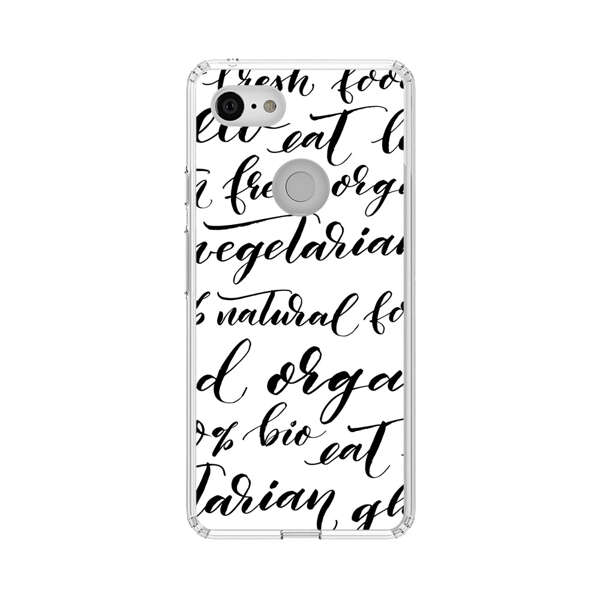 fresh foo
eat l
n free orga
vegetarian
% natural fo
d orga
0% bio eat
tarian gl